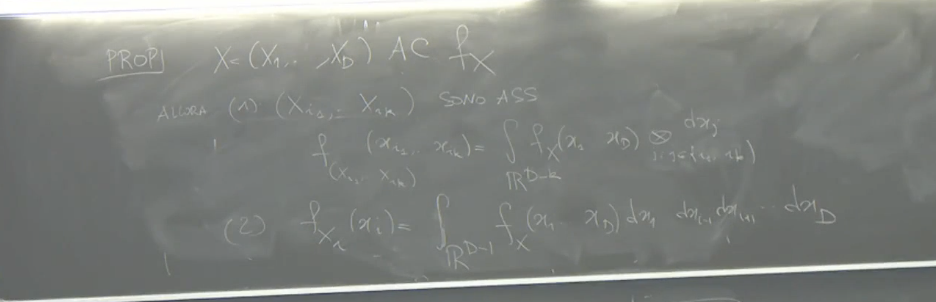 PROP] X=(X₁,..,X_D) AC f_X
ALLORA (1) (X_{i₁},.. X_{i_k}) SONO ASS
f_{(X_{i₁}, X_{i_k})} (x_{i₁}...x_{i_k})= ∫_{ℝ^{D-k}} f_X(x₁ x_D) ⊗ dx_j
(2) f_{X_i}(x_i)= ∫_{ℝ^{D-1}} f_X(x₁ x_D) dx₁ dx_{i-1} dx_{i+1} ... dx_D